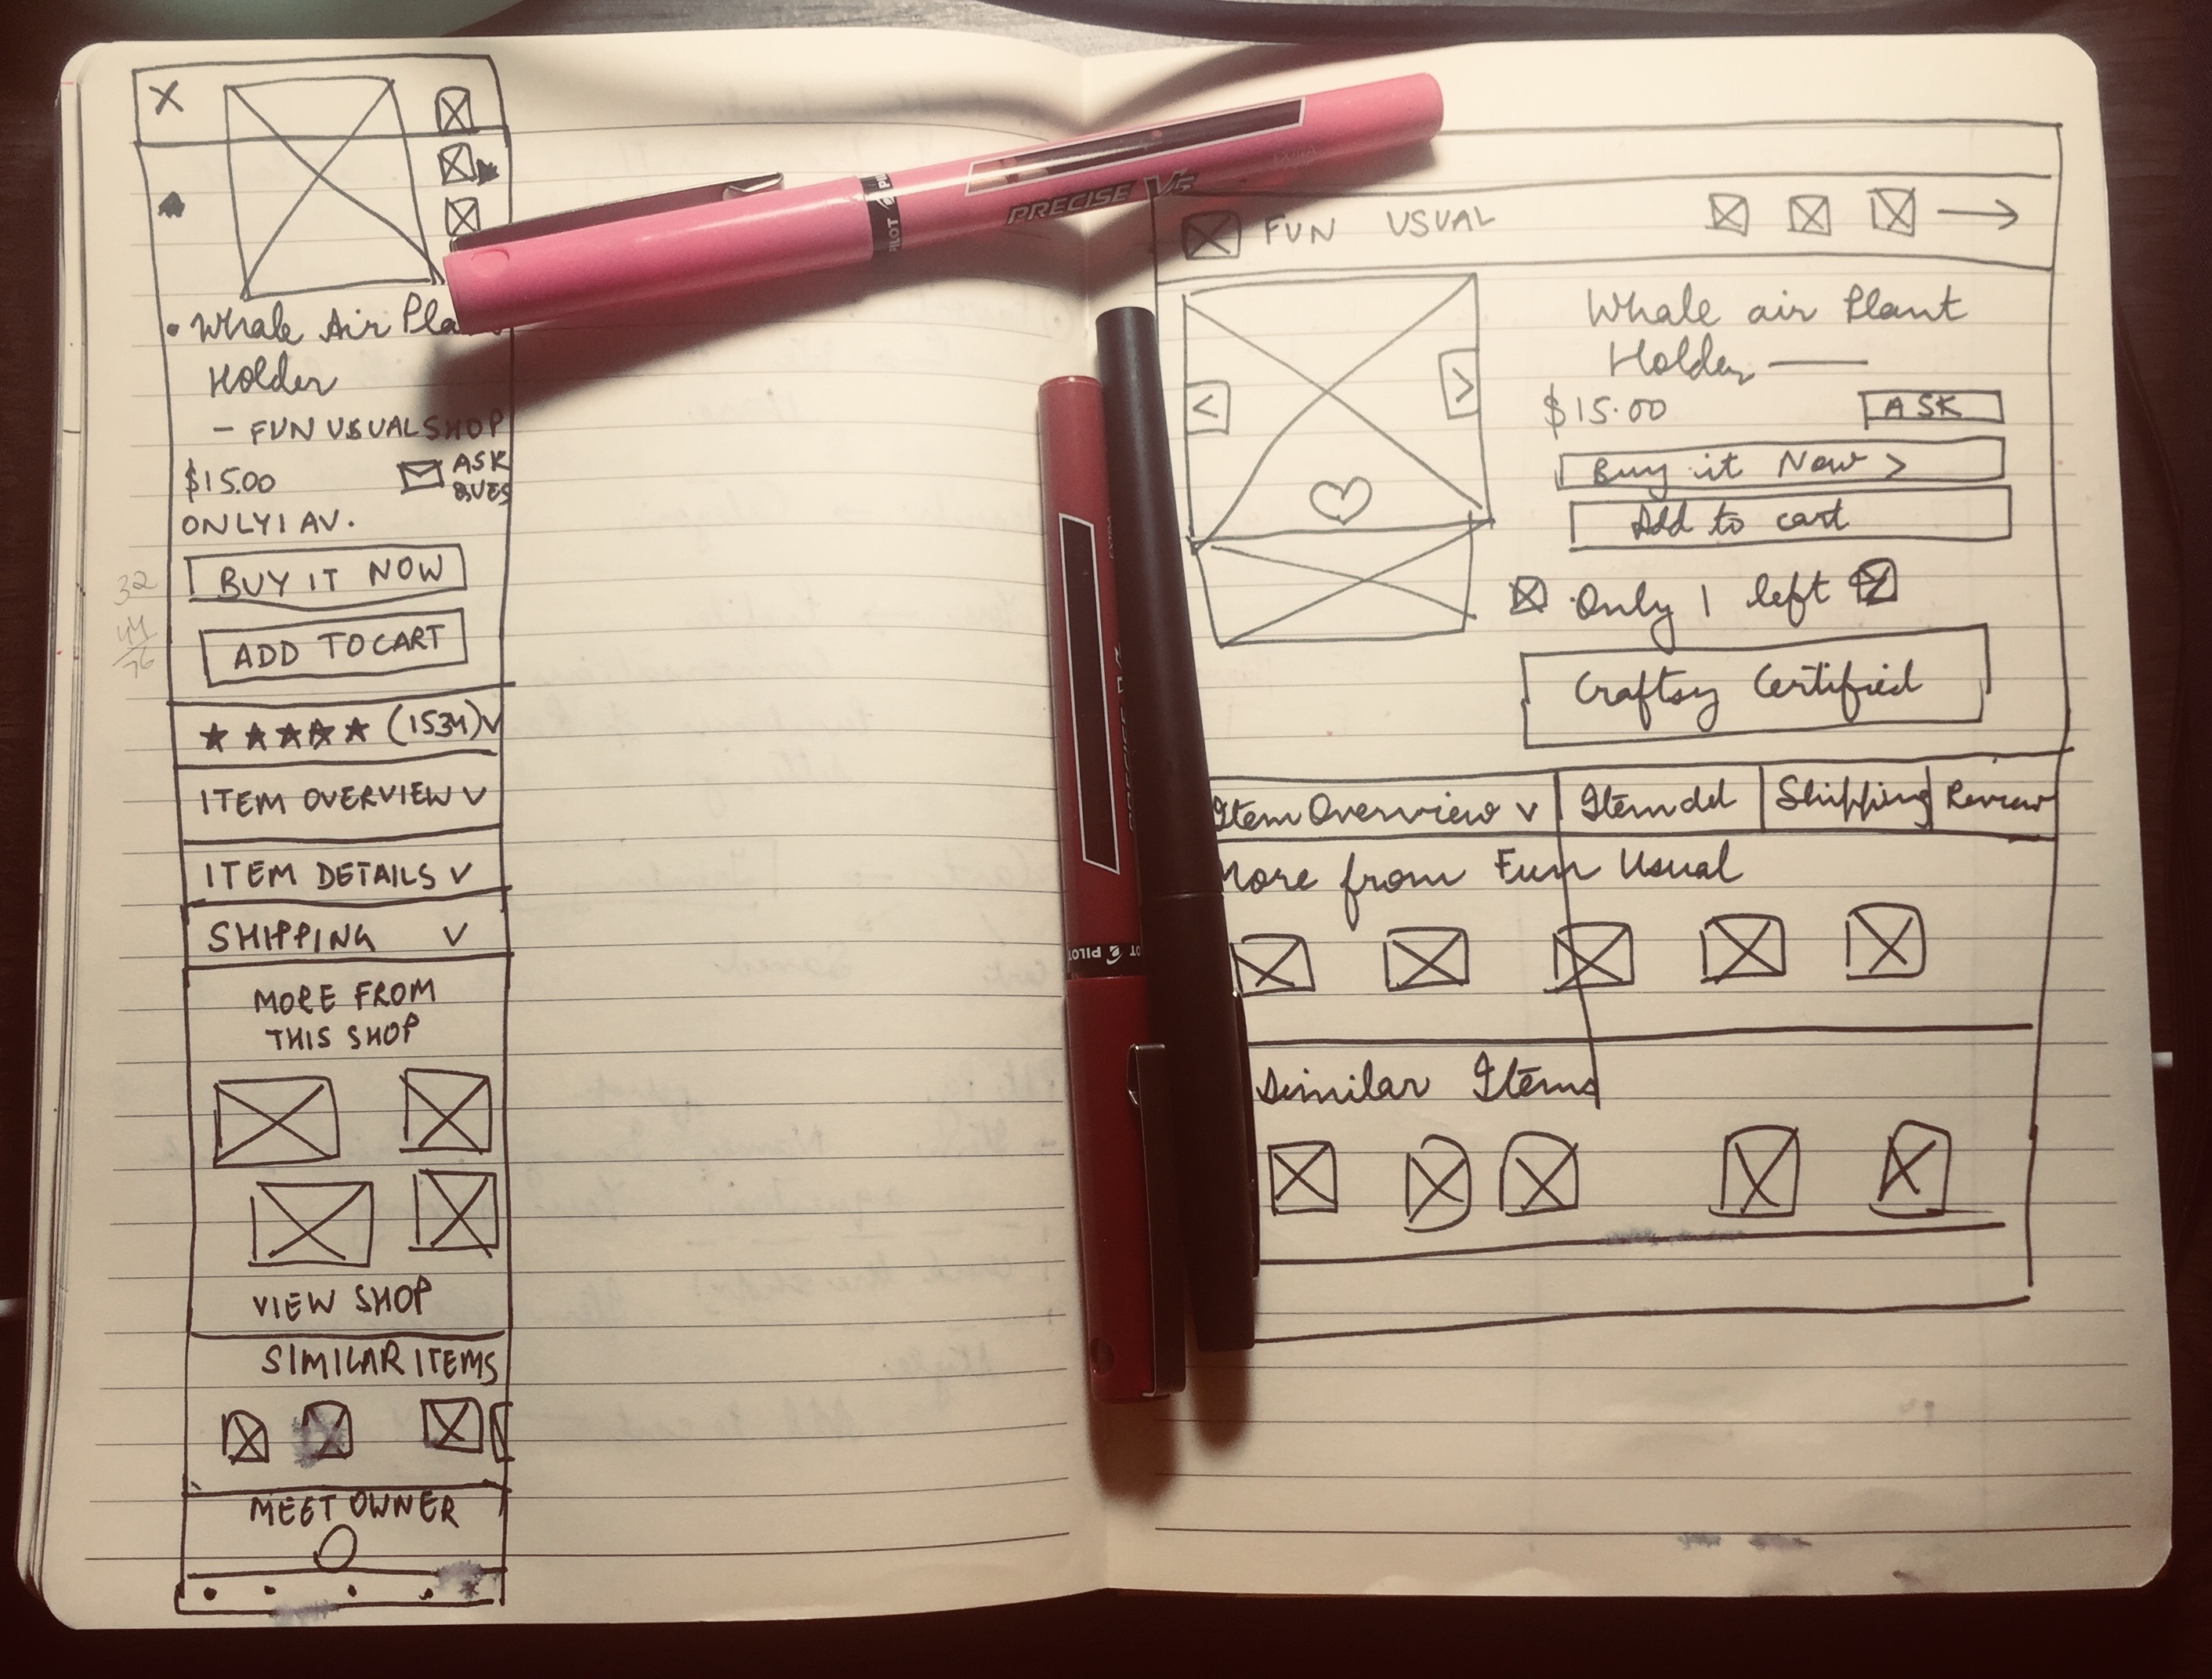 X
• Whale Air Pla
Holder
– FUN USUAL SHOP
$15.00
ASK
QUES
ONLY 1 AV.
BUY IT NOW
32
44
76
ADD TO CART
★ ★ ★ ★ ★ (1534) v
ITEM OVERVIEW v
ITEM DETAILS v
SHIPPING v
MORE FROM
THIS SHOP
VIEW SHOP
SIMILAR ITEMS
MEET OWNER
PILOT PRECISE V5
PILOT
FUN USUAL
Whale air Plant
Holder
< >
$15.00 ASK
Buy it Now >
Add to cart
Only 1 left
Craftsy Certified
Item Overview v Item del Shipping Review
More from Fun Usual
Similar Items